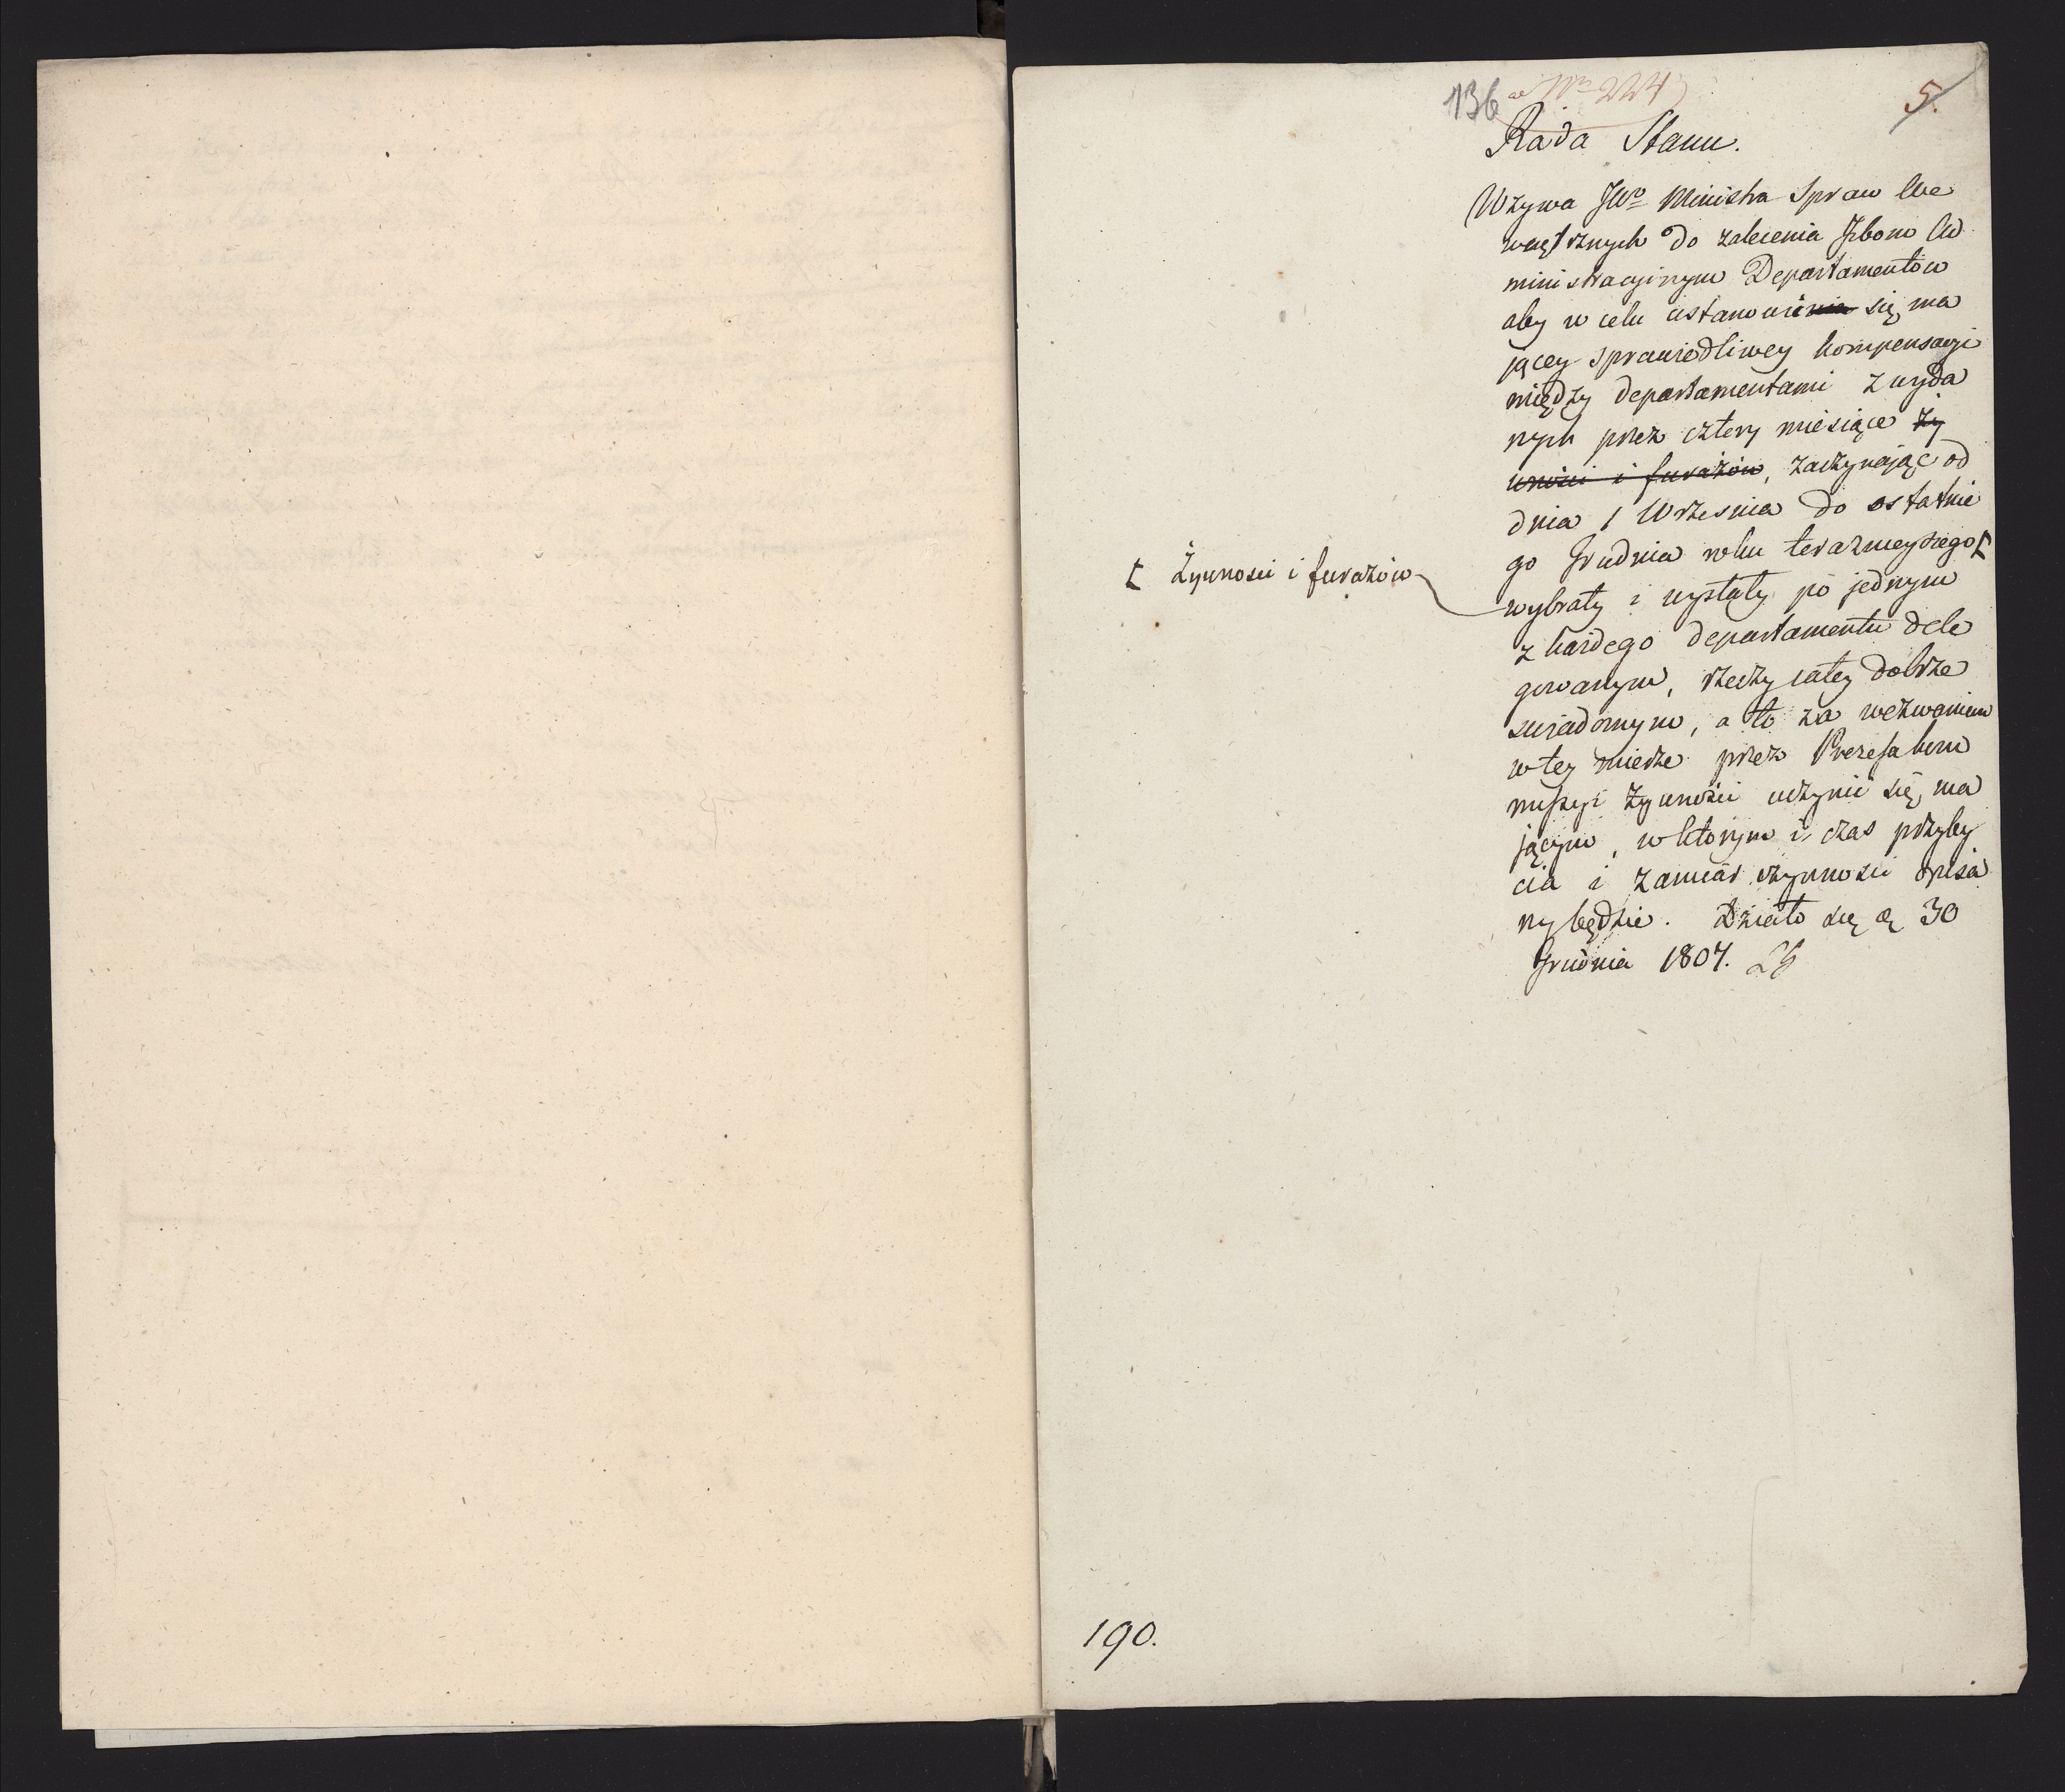 136
ad Nro 224
5.
Rada Stanu.
Wzywa JWo Ministra Spraw We
wnętrznych do zalecenia Izbom Ad
ministracyjnym Departamentów
aby w celu ustanowienia się ma
jącey sprawiedliwey kompensacyi
między departamentami z wyda
nych przez cztery miesiące ży
wności i furażów, zaczynając od
dnia 1 Września do ostatnie
go Grudnia roku teraznieyszego [
[ Żywności i furażów
wybrały i wysłały po jednym
z każdego departamentu dele
gowanym, rzeczy całey dobrze
swiadomym, a to za wezwaniem
w tey mierze przez Prezesa kom
missyi żywności uczynić się ma
jącym, w którym i czas przyby
cia i zamiar czynności opisa
ny będzie. Działo się d. 30
Grudnia 1807.
190.